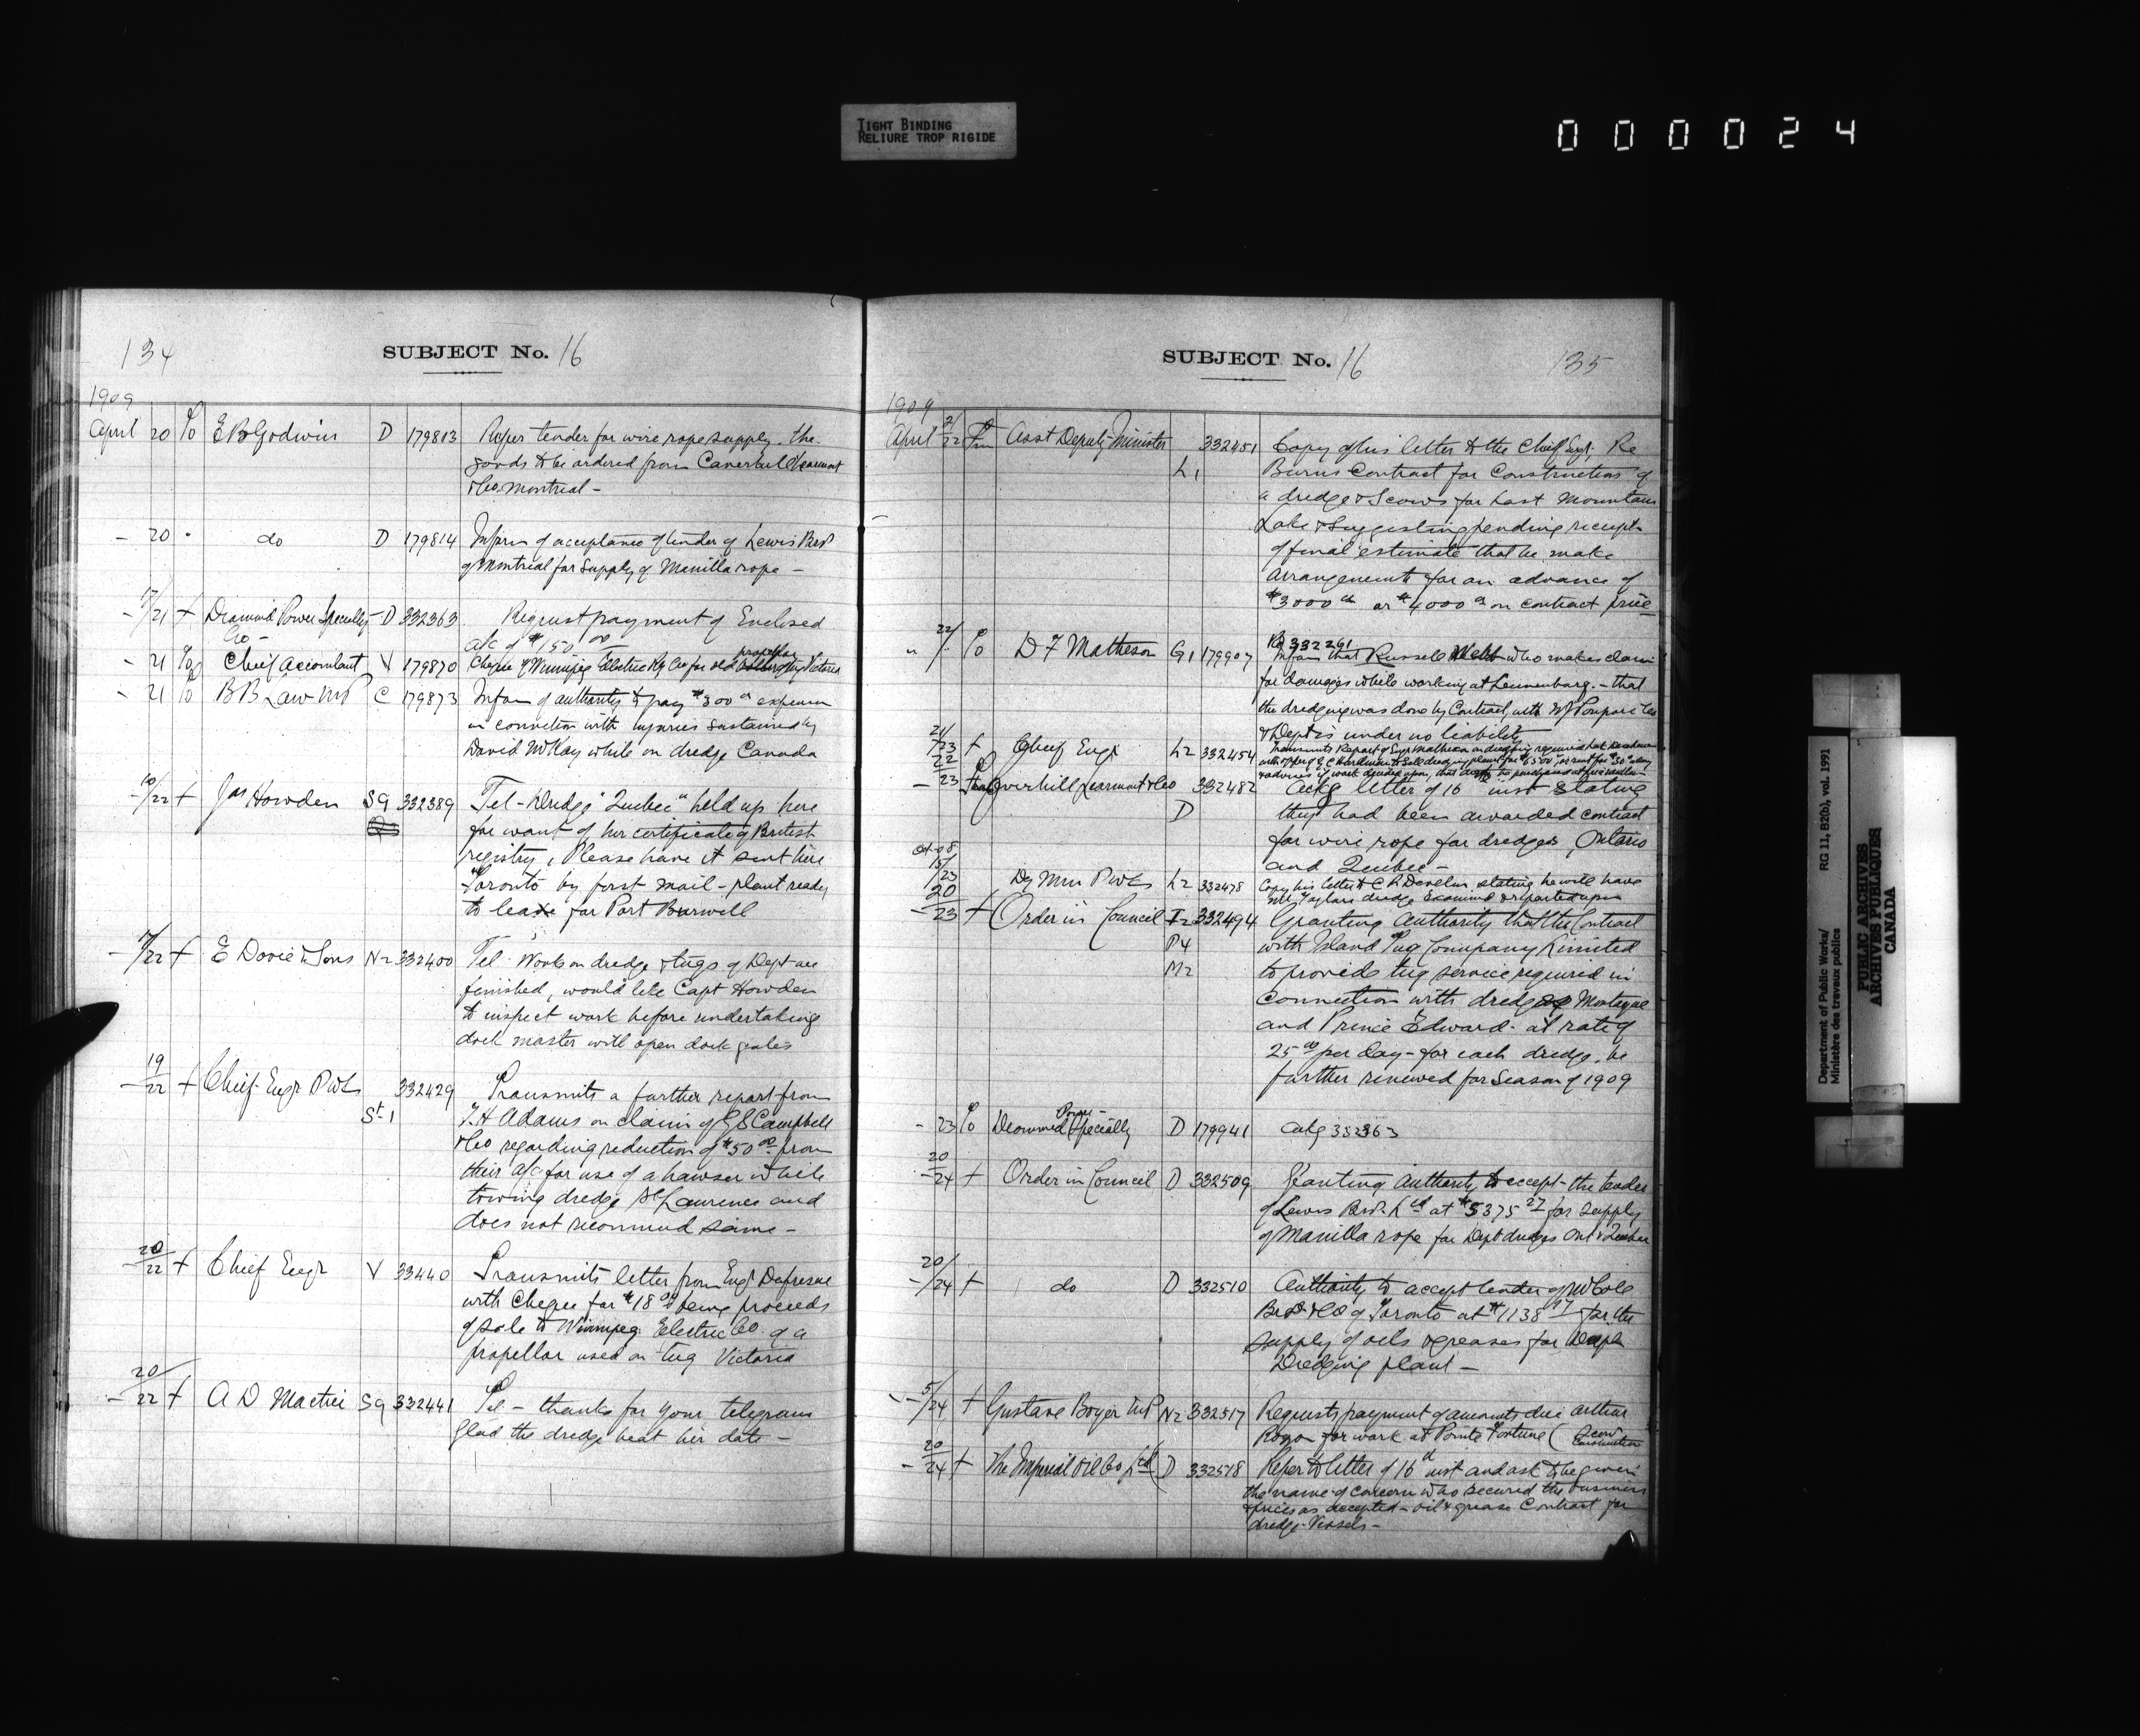 TIGHT BINDING
RELIURE TROP RIGIDE
000024
134
SUBJECT No. 16
1909
April 20 E B Godwin D 179813 Refer tender for wire rope supply. The
goods to be ordered from Learmont
& Co. Montreal -
- 20 do D 179814 Inform of acceptance of tender of Lewis Bros
of Montreal for supply of Manilla rope -
- 17/21 + Diamond Power Specialty D 332363 Request payment of Enclosed
Co - a/c of $150.00
- 21 Chief Accountant V 179870 Cheque of Winnipeg Electric Ry Co for old propeller tug Victoria
- 21 B B Law MP C 179873 Inform of authority to pay $300 expenses
in connection with injuries sustained by
David McKay while on dredge Canada
- 10/22 + Jas Howden S9 332389 Tel - Dredge "Quebec" held up here
for want of her certificate of British
registry, Please have it sent here
Toronto by first mail - plant ready
to leave for Port Burwell
- 17/22 + E Davie & Sons N2 332400 Tel - Work on dredge & tugs of Dept are
finished, would like Capt Howden
to inspect work before undertaking
dock master will open dock gates
- 19/22 + Chief Engr PWks 332429 Transmits a further report from
St-1 T.H Adams on claim of G S Campbell
& Co regarding reduction of $50.00 from
their a/c for use of a hawser while
towing dredge St Lawrence and
does not recommend same -
20/22 + Chief Engr V 33440 Transmits letter from Engr Dufresne
with Cheque for $18.00 being proceeds
of sale to Winnipeg Electric Co. of a
propellor used on tug Victoria
20
- 22 + A D Mactier S9 332441 Tel - thanks for your telegram
Glad the dredge beat her date -
SUBJECT No. 16
135
1909
April 21/22 Asst Deputy Minister 332451 Copy of his letter to the Chief Supt, Re
L1 Burns Contract for Construction of
a dredge & Scows for Last Mountain
Lake & Suggesting pending receipt
of final estimate that he make
arrangements for an advance of
$3000 or $4000 on contract price
" 22/ D F Matheson G1 179907 Re 332261
Inform that Russell Webb who makes claim
for damages while working at Lunenburg. - that
the dredging was done by Contract, with W J Poupore Co
& Dept is under no liability
21/23 + Chief Engr L2 332454 Transmits Report of Engr Matheson on dredging required at
22
- 23 Caverhill Learmont & Co 332482 Ackg letter of 16 inst stating
D they had been awarded contract
for wire rope for dredges, Ontario
and Quebec -
Oct-08
15/23 Dy Min PWks L2 332478 Copy his letter to C R Devlin, stating he will have
Mr Taylors dredge Examined & reported upon
20
- 23 + Order in Council I2 332494 Granting Authority that the Contract
P4 with Island Tug Company Limited
M2 to provide tug service required in
connection with dredges Montague
and Prince Edward - at rate of
25.00 per day - for each dredge, be
further renewed for Season of 1909
- 23 Diammond Power Specialty D 179941 Ackg 332363
20
- 24 + Order in Council D 332509 Granting Authority to accept - the tender
of Lewis Bros. Ltd at $5375.27 for supply
of Manilla rope for Dept dredges Ont & Quebec
20/
- 24 + do D 332510 Authority to accept tender of W Cole
Bros & Co of Toronto at $1138.17 for the
supply of oils & greases for Dept
Dredging plant -
- 5/24 + Gustave Boyer MP N2 332517 Requests payment of amounts due Arthur
for work at Pointe Fortune (Scow Construction
20
- 24 + The Imperial Oil Co Ltd D 332518 Refer to letter of 16th inst and ask to be given
the name of concern who secured the business
& prices as accepted - oil & grease Contract for
dredge Vessels -
Department of Public Works/ RG 11, B2(b), vol. 1991
Ministère des travaux publics
PUBLIC ARCHIVES
ARCHIVES PUBLIQUES
CANADA